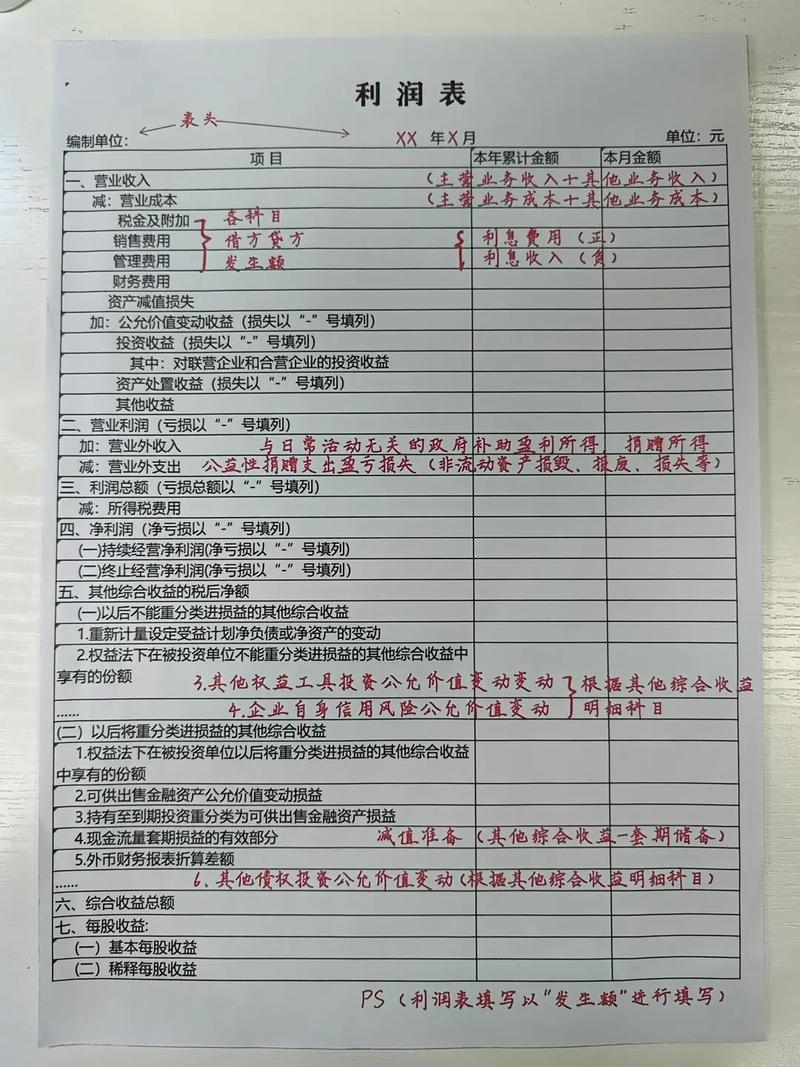 利润表
表头
编制单位： XX 年X月 单位：元
项目 本年累计金额 本月金额
一、营业收入 （主营业务收入＋其他业务收入）
减：营业成本 （主营业务成本＋其他业务成本）
税金及附加 各科目
销售费用 借方贷方 利息费用（正）
管理费用 发生额 利息收入（负）
财务费用
资产减值损失
加：公允价值变动收益（损失以“-”号填列）
投资收益（损失以“-”号填列）
其中：对联营企业和合营企业的投资收益
资产处置收益（损失以“-”号填列）
其他收益
二、营业利润（亏损以“-”号填列）
加：营业外收入 与日常活动无关的政府补助盈利所得，捐赠所得
减：营业外支出 公益性捐赠支出盈亏损失（非流动资产损毁、报废、损失等）
三、利润总额（亏损总额以“-”号填列）
减：所得税费用
四、净利润（净亏损以“-”号填列）
(一)持续经营净利润(净亏损以“-”号填列)
(二)终止经营净利润(净亏损以“-”号填列)
五、其他综合收益的税后净额
(一)以后不能重分类进损益的其他综合收益
1.重新计量设定受益计划净负债或净资产的变动
2.权益法下在被投资单位不能重分类进损益的其他综合收益中
享有的份额 3.其他权益工具投资公允价值变动变动 根据其他综合收益
...... 4.企业自身信用风险公允价值变动 明细科目
(二）以后将重分类进损益的其他综合收益
1.权益法下在被投资单位以后将重分类进损益的其他综合收益
中享有的份额
2.可供出售金融资产公允价值变动损益
3.持有至到期投资重分类为可供出售金融资产损益
4.现金流量套期损益的有效部分 减值准备（其他综合收益-套期储备）
5.外币财务报表折算差额
...... 6、其他债权投资公允价值变动(根据其他综合收益明细科目）
六、综合收益总额
七、每股收益:
(一）基本每股收益
(二）稀释每股收益
PS（利润表填写以“发生额”进行填写）